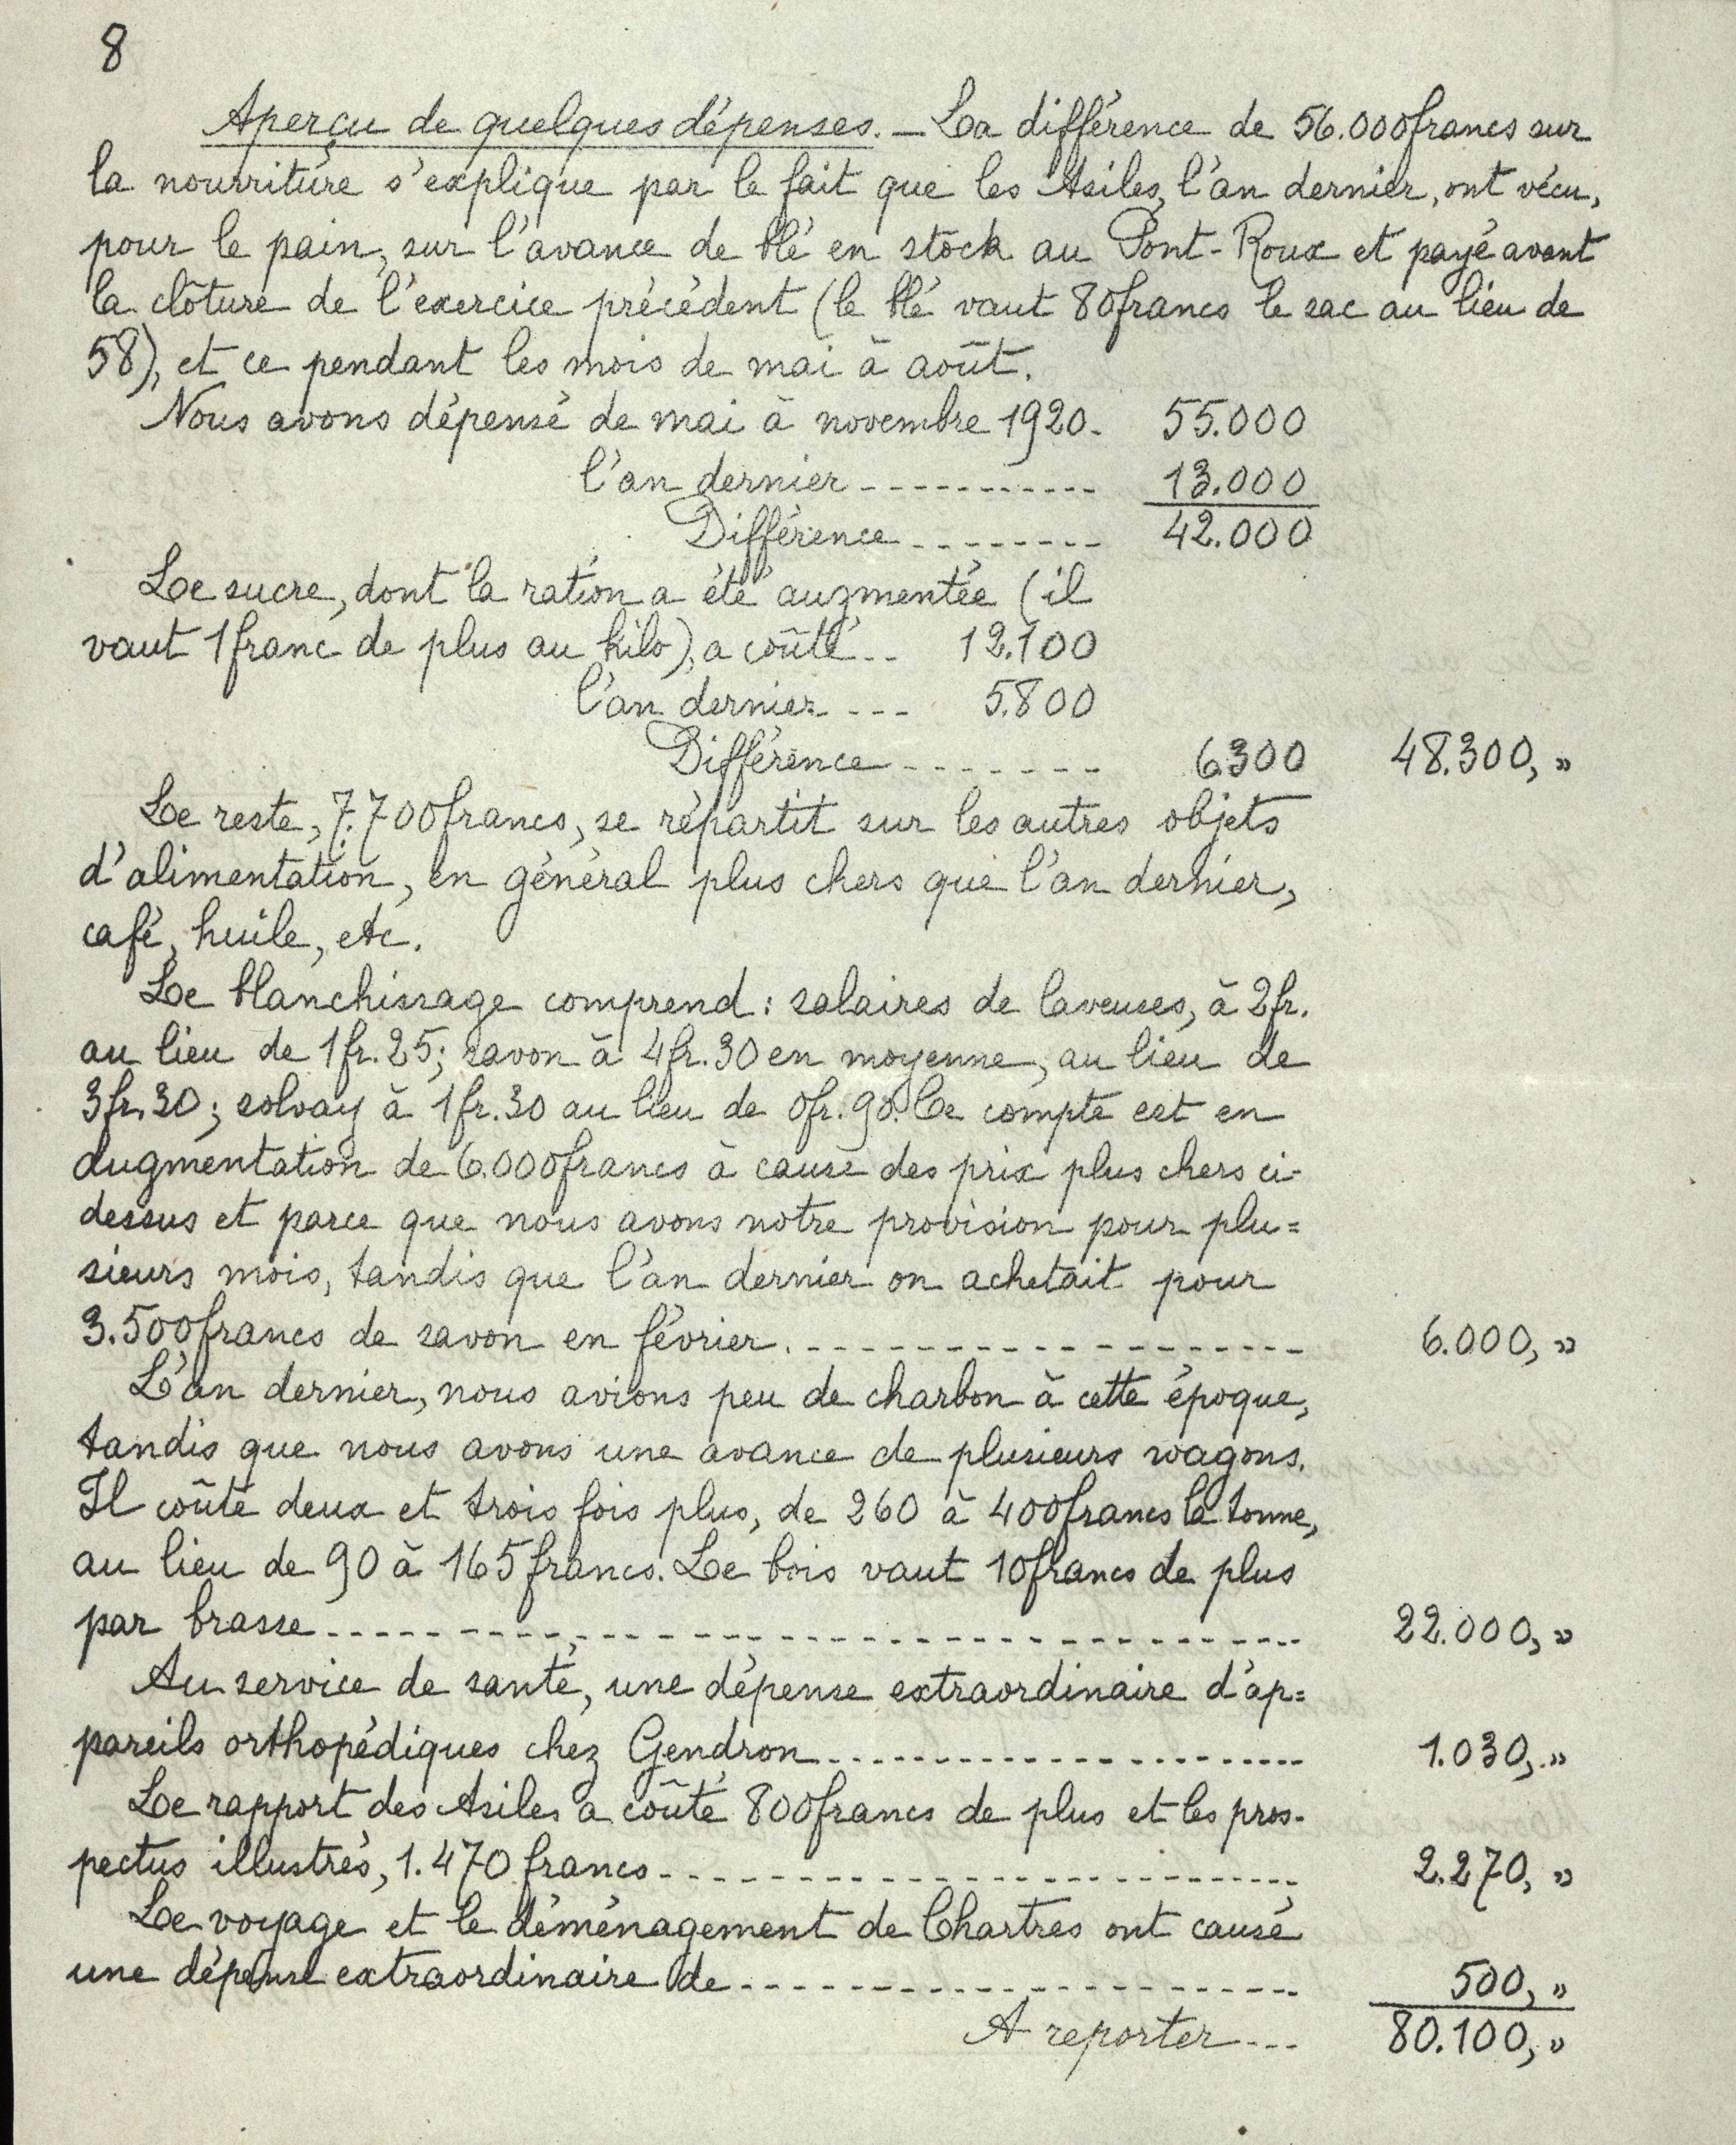 8
Aperçu de quelques dépenses. — La différence de 56.000 francs sur
la nourriture s'explique par le fait que les Asiles, l'an dernier, ont vécu,
pour le pain, sur l'avance de blé en stock au Pont-Roux et payé avant
la clôture de l'exercice précédent (le blé vaut 80 francs le sac au lieu de
58), et ce pendant les mois de mai à août.
Nous avons dépensé de mai à novembre 1920. 55.000
l'an dernier ----------- 13.000
Différence -------- 42.000
Le sucre, dont la ration a été augmentée (il
vaut 1 franc de plus au kilo), a coûté -- 12.100
l'an dernier --- 5.800
Différence ------- 6.300 48.300, »
Le reste, 7.700 francs, se répartit sur les autres objets
d'alimentation, en général plus chers que l'an dernier,
café, huile, etc.
Le blanchissage comprend : salaires de laveuses, à 2 fr.
au lieu de 1 fr. 25 ; savon à 4 fr. 30 en moyenne, au lieu de
3 fr. 30 ; solvay à 1 fr. 30 au lieu de 0 fr. 90. Ce compte est en
augmentation de 6.000 francs à cause des prix plus chers ci-
dessus et parce que nous avons notre provision pour plu=
sieurs mois, tandis que l'an dernier on achetait pour
3.500 francs de savon en février. ------------------- 6.000, »
L'an dernier, nous avions peu de charbon à cette époque,
tandis que nous avons une avance de plusieurs wagons.
Il coûte deux et trois fois plus, de 260 à 400 francs la tonne,
au lieu de 90 à 165 francs. Le bois vaut 10 francs de plus
par brasse ----------------------------------- 22.000, »
Au service de santé, une dépense extraordinaire d'ap=
pareils orthopédiques chez Gendron --------------------- 1.030, »
Le rapport des Asiles a coûté 800 francs de plus et les pros-
pectus illustrés, 1.470 francs --------------------------- 2.270, »
Le voyage et le déménagement de Chartres ont causé
une dépense extraordinaire de ---------------------- 500, »
A reporter --- 80.100, »